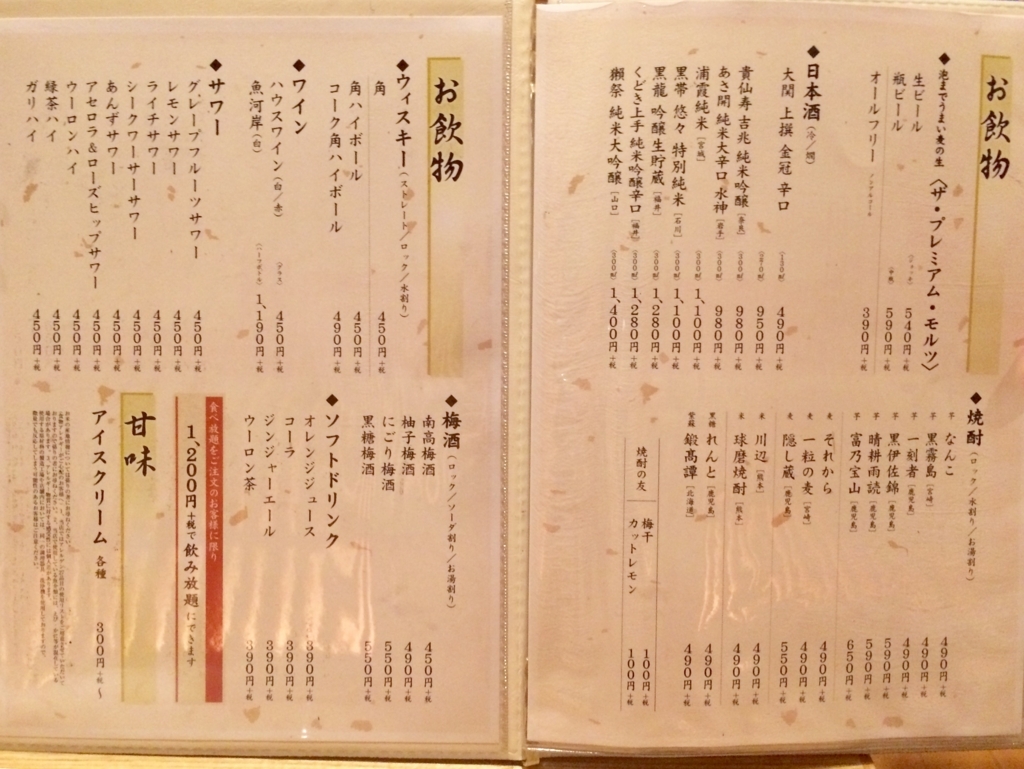 お飲物
◆泡までうまい麦の生〈ザ・プレミアム・モルツ〉
生ビール（ジョッキ）540円+税
瓶ビール（中瓶）590円+税
オールフリー ノンアルコール 390円+税
◆日本酒（冷／燗）
大関 上撰 金冠 辛口 490円+税
貴仙寿 吉兆 純米吟醸［奈良］950円+税
あさ開 純米大辛口 水神［岩手］（300㎖）980円+税
浦霞純米［宮城］（300㎖）980円+税
黒帯 悠々 特別純米［石川］（300㎖）1,100円+税
黒龍 吟醸生貯蔵［福井］（300㎖）1,100円+税
くどき上手 純米吟醸辛口（300㎖）1,280円+税
獺祭 純米大吟醸［山口］（300㎖）1,400円+税
◆焼酎（ロック／水割り／お湯割り）
芋 なんこ 490円+税
芋 黒霧島［宮崎］490円+税
芋 一刻者［鹿児島］490円+税
芋 黒伊佐錦［鹿児島］590円+税
芋 晴耕雨読［鹿児島］590円+税
芋 富乃宝山［鹿児島］650円+税
麦 それから 490円+税
麦 一粒の麦［宮崎］490円+税
麦 隠し蔵［鹿児島］550円+税
米 川辺［熊本］490円+税
米 球磨焼酎［熊本］490円+税
黒糖 れんと［鹿児島］490円+税
紫蘇 鍛高譚［北海道］490円+税
焼酎の友
梅干 100円+税
カットレモン 100円+税
お飲物
◆ウィスキー（ストレート／ロック／水割り）
角 450円+税
角ハイボール 450円+税
コーク角ハイボール 490円+税
◆ワイン
ハウスワイン（白／赤）（グラス）450円+税
魚河岸（白）（ハーフボトル）1,190円+税
◆サワー
グレープフルーツサワー 450円+税
レモンサワー 450円+税
ライチサワー 450円+税
シークワーサーサワー 450円+税
あんずサワー 450円+税
アセロラ&ローズヒップサワー 450円+税
ウーロンハイ 450円+税
緑茶ハイ 450円+税
ガリハイ 450円+税
◆梅酒（ロック／ソーダ割り／お湯割り）
南高梅酒 450円+税
柚子梅酒 490円+税
にごり梅酒 550円+税
黒糖梅酒 550円+税
◆ソフトドリンク
オレンジジュース 390円+税
コーラ 390円+税
ジンジャーエール 390円+税
ウーロン茶 390円+税
食べ放題をご注文のお客様に限り
1,200円+税で飲み放題にできます
甘味
アイスクリーム 各種 300円+税〜